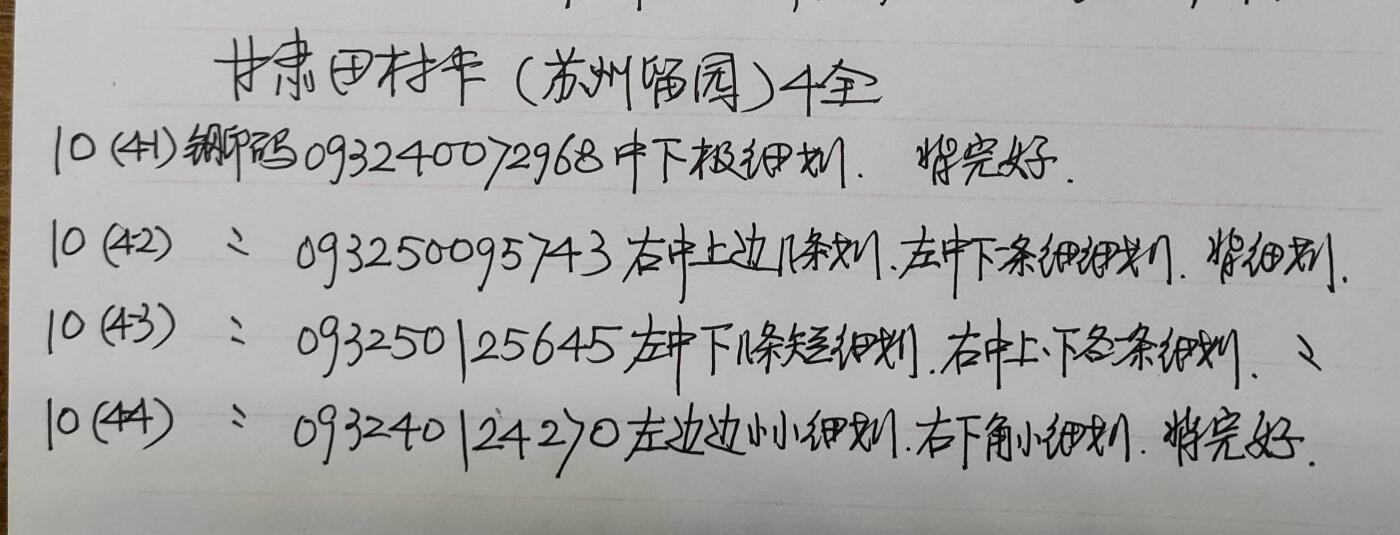 甘肃田村卡(苏州留园)4全
10(4-1)钢印码093240072968中下极细划. 背完好.
10(4-2) 〃 093250095743右中上边几条划.左中下条细细划. 背细划.
10(4-3) 〃 093250125645左中下几条短细划.右中上.下各条细划. 〃
10(4-4) 〃 093240124270左边边小小细划.右下角小细划. 背完好.